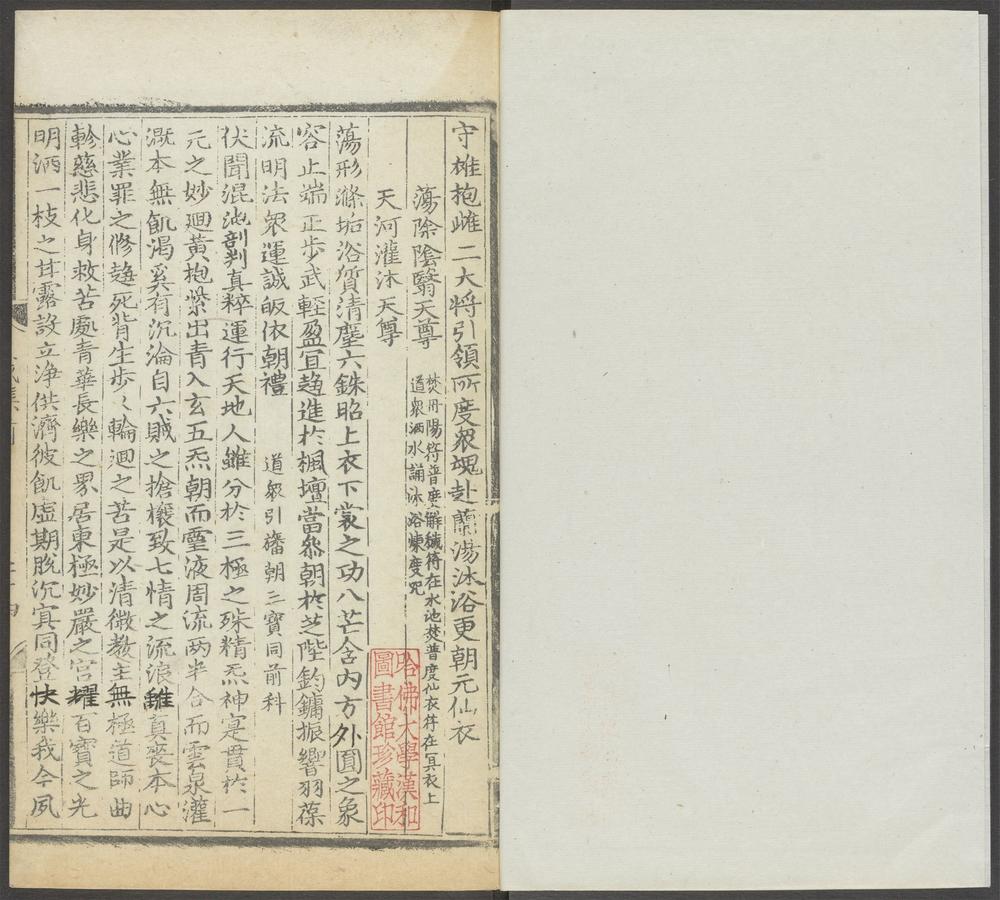 守雄抱雌二大將引領所度眾魂赴蘭湯沐浴更朝元仙衣
蕩除陰翳天尊
焚丹陽符普度解穢符在水池焚普度仙衣符在冥衣上
道眾洒水誦沐浴煉度咒
天河灌沐天尊
蕩形滌垢浴質清塵六銖昭上衣下裳之功八芒含內方外圓之象
容止端正步武輕盈宜趍進於楓壇當叅朝於芝陛鈞鏞振響羽葆
流明法眾運誠皈依朝禮
道眾引旛朝三寶同前科
伏聞混沌剖判真粹運行天地人雖分於三極之殊精炁神寔貫於一
元之妙廻黃抱紫出青入玄五炁朝而靈液周流两半合而雲泉灌
溉本無飢渴奚有沉淪自六賊之搶攘致七情之流浪離真喪本心
心業罪之修趍死背生步〻輪廻之苦是以清微教主無極道師曲
軫慈悲化身救苦處青華長樂之界居東極妙嚴之宮耀百寶之光
明洒一枝之甘露設立淨供濟彼飢虛期脫沉冥同登快樂我今夙
哈佛大學漢和
圖書館珍藏印